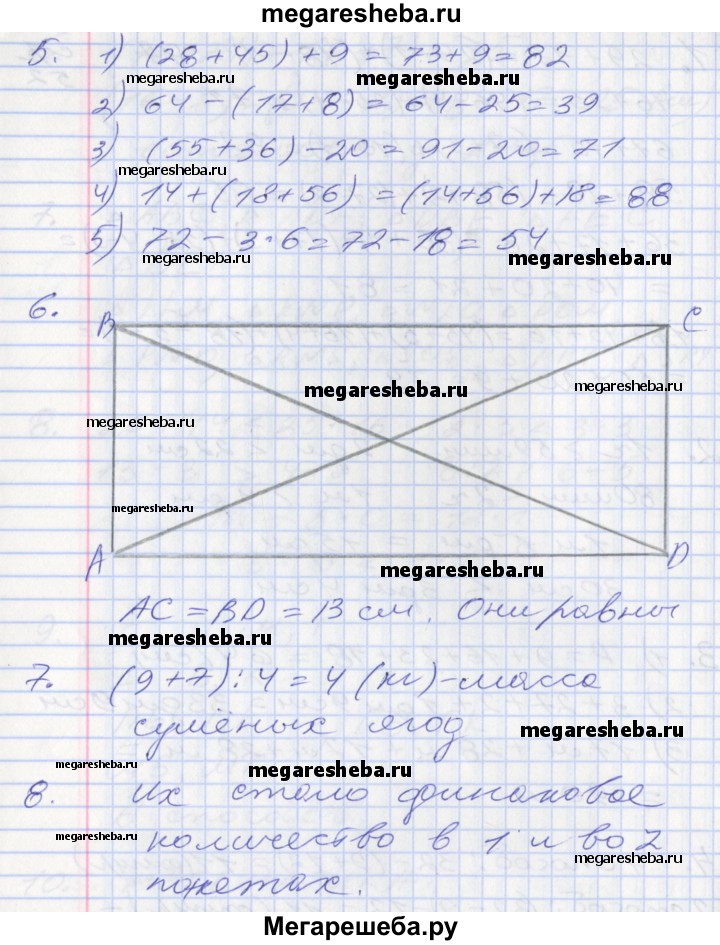 megaresheba.ru
5. 1) (28+45)+9=73+9=82
megaresheba.ru megaresheba.ru
2) 64-(17+8)=64-25=39
3) (55+36)-20=91-20=71
megaresheba.ru
4) 14+(18+56)=(14+56)+18=88
5) 72-3·6=72-18=54
megaresheba.ru megaresheba.ru
6.
B C
megaresheba.ru megaresheba.ru
megaresheba.ru
megaresheba.ru
A D
megaresheba.ru
AC=BD=13 см. Они равны
megaresheba.ru
7. (9+7):4=4 (кг)-масса
сушёных ягод
megaresheba.ru
megaresheba.ru megaresheba.ru
8. Их стало динаковое
megaresheba.ru
количество в 1 и во 2
megaresheba.ru
пакетах.
Мегарешеба.ру